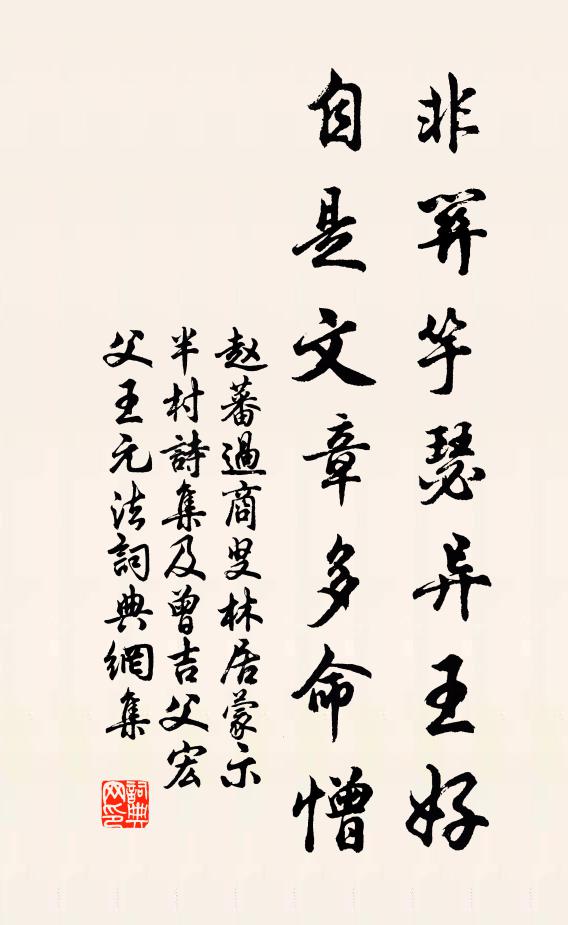 非關竽瑟异王好
自是文章多命憎
赵蕃過商叟林居蒙示
半村詩集及曾吉父宏
父王元法詞典網集
詞典网印